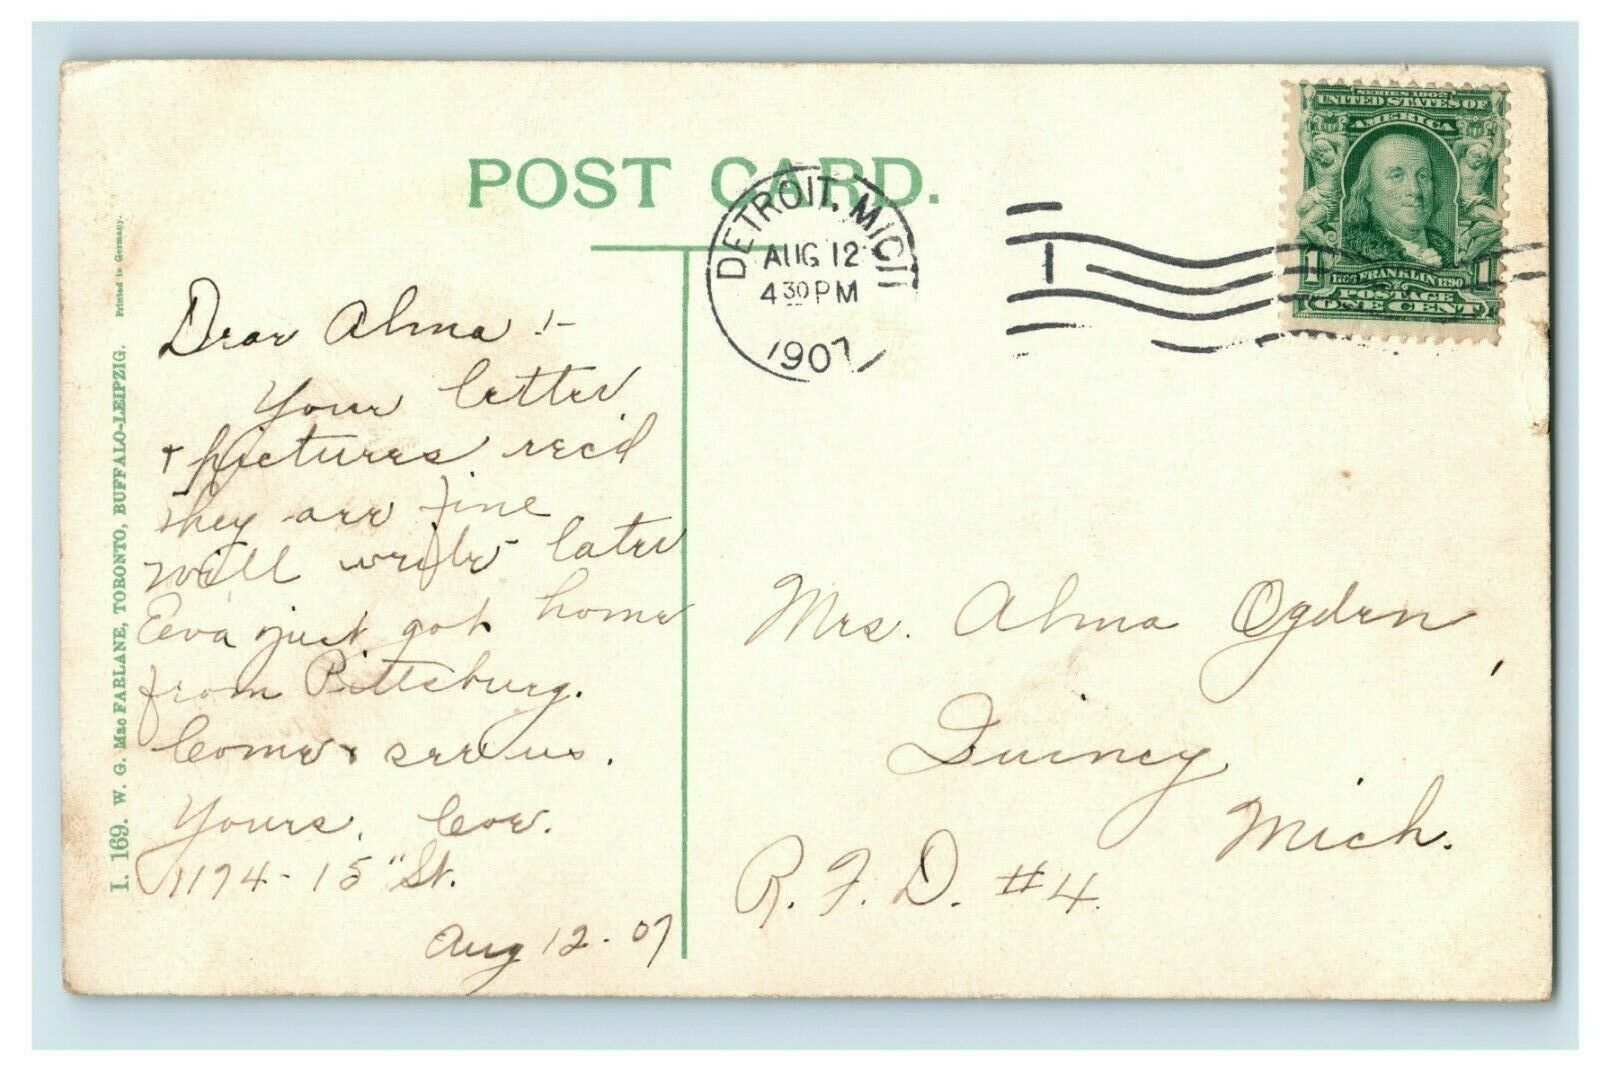 POST CARD.
DETROIT, MICH
AUG 12
4 30 PM
1907
1
SERIES 1902
UNITED STATES OF
AMERICA
1 1
1706 FRANKLIN 1790
POSTAGE
ONE CENT
Dear Alma :-
Your letter
+ pictures rec'd
they are fine
will write later
Eva just got home
from Pittsburg.
Come + see us.
Yours,
1194 - 15" St.
Aug 12 - 07
Mrs. Alma Ogden,
Quincy
Mich.
R. F. D. #4
I. 169. W. G. Mac FARLANE, TORONTO, BUFFALO-LEIPZIG. Printed in Germany.